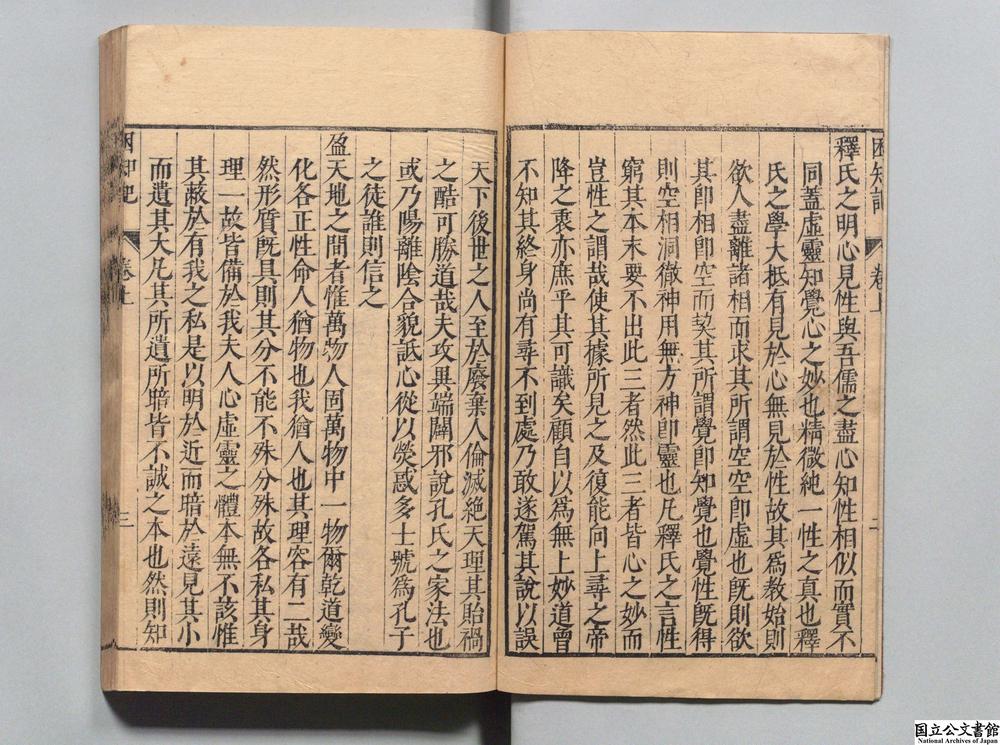 困知記 卷上 二
釋氏之明心見性與吾儒之盡心知性相似而實不
同蓋虛靈知覺心之妙也精微純一性之真也釋
氏之學大抵有見於心無見於性故其爲教始則
欲人盡離諸相而求其所謂空空卽虛也旣則欲
其卽相卽空而契其所謂覺卽知覺也覺性旣得
則空相洞徹神用無方神卽靈也凡釋氏之言性
窮其本末要不出此三者然此三者皆心之妙而
豈性之謂哉使其據所見之及復能向上尋之帝
降之衷亦庶乎其可識矣顧自以爲無上妙道曾
不知其終身尚有尋不到處乃敢遂駕其說以誤
天下後世之人至於廢棄人倫滅絕天理其貽禍
之酷可勝道哉夫攻異端闢邪說孔氏之家法也
或乃陽離陰合貌詆心從以熒惑多士號爲孔子
之徒誰則信之
盈天地之間者惟萬物人固萬物中一物爾乾道變
化各正性命人猶物也我猶人也其理容有二哉
然形質旣具則其分不能不殊分殊故各私其身
理一故皆備於我夫人心虛靈之體本無不該惟
其蔽於有我之私是以明於近而暗於遠見其小
而遺其大凡其所遺所暗皆不誠之本也然則知
困知記 卷上 三
国立公文書館
National Archives of Japan